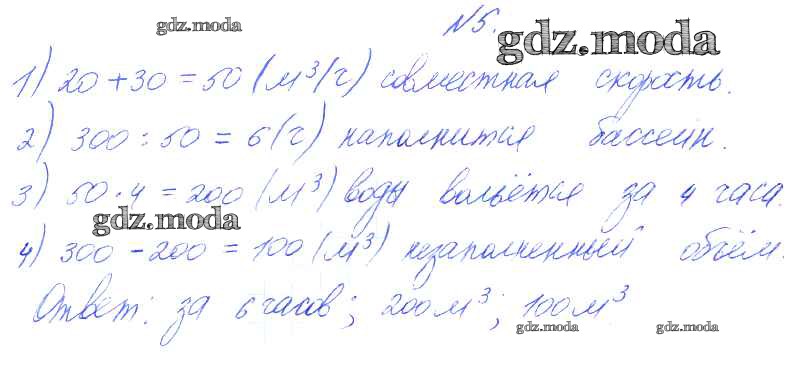 gdz.moda
N5.
gdz.moda
1) 20 + 30 = 50 (м³/ч) совместная скорость.
2) 300 : 50 = 6 (ч) наполнится бассейн.
3) 50 · 4 = 200 (м³) воды вольётся за 4 часа.
gdz.moda
4) 300 - 200 = 100 (м³) незаполненный объём.
Ответ: за 6 часов; 200 м³; 100 м³
gdz.moda
gdz.moda